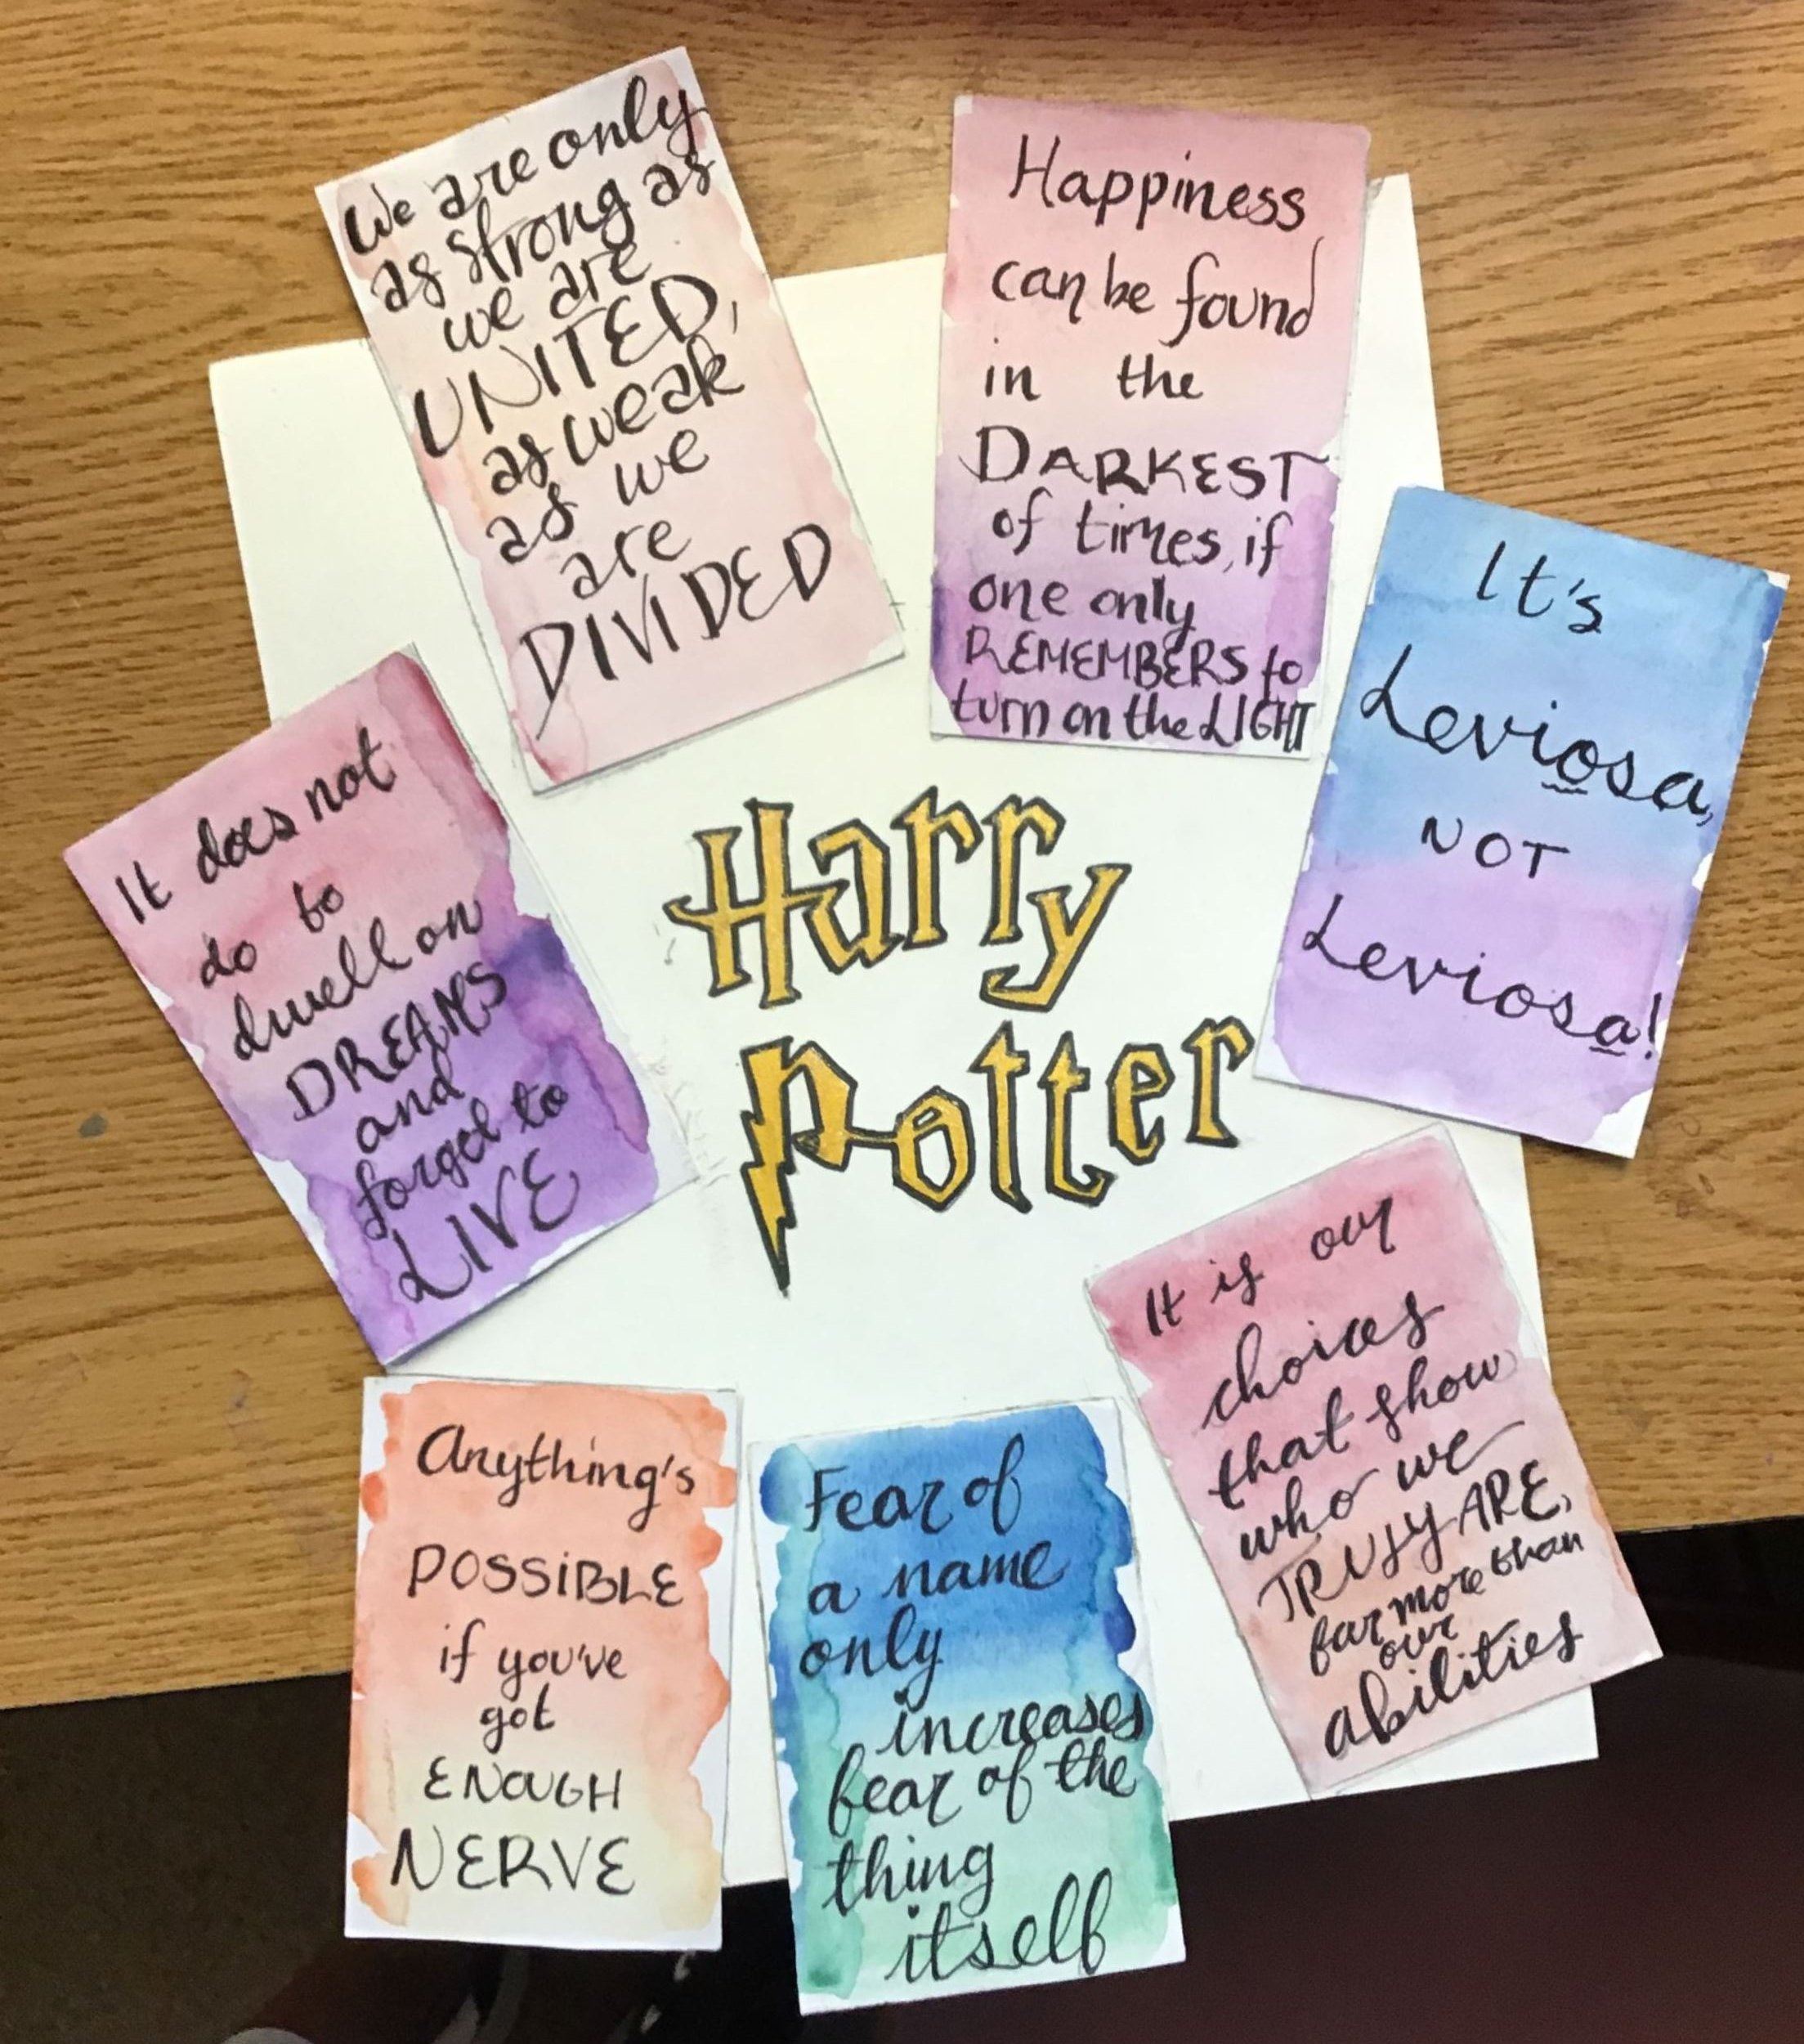 We are only
as strong as
we are
UNITED,
as weak
as we
are
DIVIDED
Happiness
can be found
in the
DARKEST
of times, if
one only
REMEMBERS to
turn on the LIGHT
It's
Leviosa,
NOT
Leviosa!
It does not
do to
dwell on
DREAMS
and
forget to
LIVE
Harry
Potter
It is our
choices
that show
who we
TRULY ARE,
far more than
our
abilities
Anything's
POSSiBLE
if you've
got
ENOUGH
NERVE
Fear of
a name
only
increases
fear of the
thing
itself